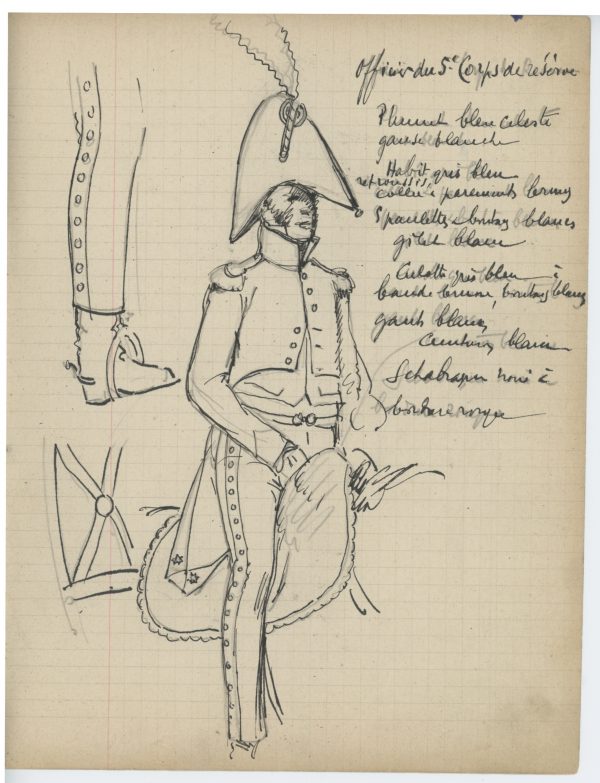 Officier du 5e Corps de réserve
Plumet bleu céleste
ganse blanche
Habit gris bleu
retroussis,
collet & parements
Epaulettes & boutons blancs
gilet blanc
Culotte gris bleu à
bande boutons blancs
gants blancs
ceinture blanche
Schabraque à
bordure rouge